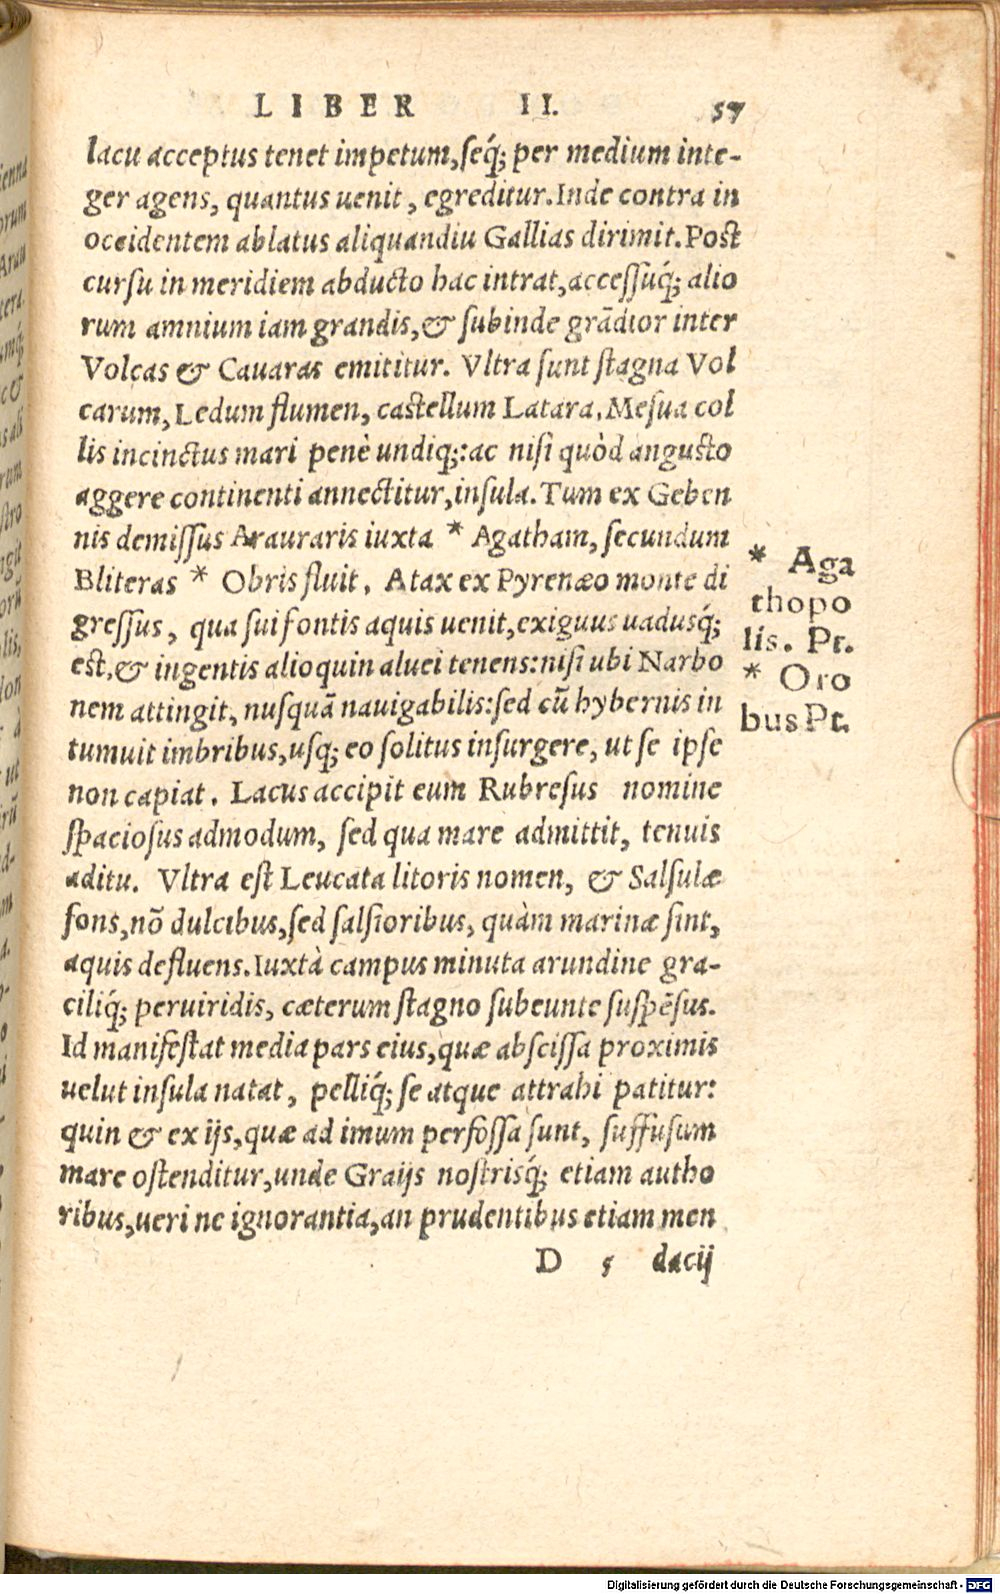 LIBER II. 57
lacu acceptus tenet impetum, ſeq́; per medium inte-
ger agens, quantus uenit, egreditur. Inde contra in
occidentem ablatus aliquandiu Gallias dirimit. Poſt
curſu in meridiem abducto hac intrat, acceſſuq́; alio
rum amnium iam grandis, & ſubinde grãdior inter
Volcas & Cauaras emititur. Vltra ſunt ſtagna Vol
carum, Ledum flumen, caſtellum Latara. Meſua col
lis incinctus mari penè undiq;: ac niſi quòd anguſto
aggere continenti annectitur, inſula. Tum ex Geben
nis demiſſus Arauraris iuxta * Agatham, ſecundum
Bliteras * Obris fluit. Atax ex Pyrenæo monte di
greſſus, qua ſui fontis aquis uenit, exiguus uadusq́;
eſt, & ingentis alioquin aluei tenens: niſi ubi Narbo
nem attingit, nuſquã nauigabilis: ſed cũ hybernis in
tumuit imbribus, uſq; eo ſolitus inſurgere, ut ſe ipſe
non capiat. Lacus accipit eum Rubreſus nomine
ſpacioſus admodum, ſed qua mare admittit, tenuis
aditu. Vltra eſt Leucata litoris nomen, & Salſulæ
fons, nõ dulcibus, ſed ſalſioribus, quàm marinæ ſint,
aquis defluens. Iuxtà campus minuta arundine gra-
ciliq́; peruiridis, cæterum ſtagno ſubeunte ſuſpẽſus.
Id manifeſtat media pars eius, quæ abſciſſa proximis
uelut inſula natat, pelliq́; ſe atque attrahi patitur:
quin & ex ijs, quæ ad imum perfoſſa ſunt, ſuffuſum
mare oſtenditur, unde Graijs noſtrisq́; etiam autho
ribus, ueri ne ignorantia, an prudentibus etiam men
D 5 dacij
* Aga
thopo
lis. Pt.
* Oro
bus Pt.
Digitalisierung gefördert durch die Deutsche Forschungsgemeinschaft - DFG